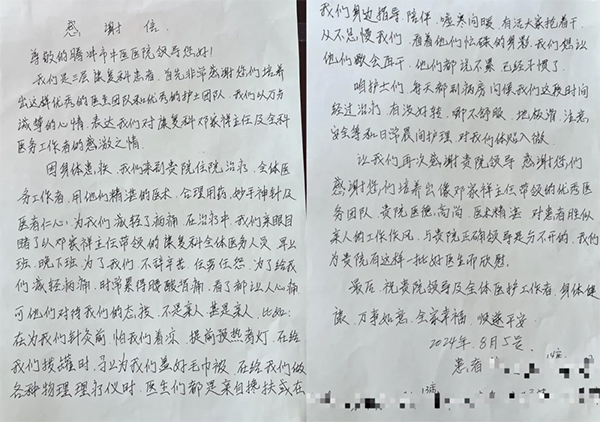 感谢信
尊敬的腾冲市中医医院领导您好！
我们是二层康复科患者，首先非常感谢您们培养
出这样优秀的医生团队和优秀的护士团队，我们以万分
诚挚的心情，表达我们对康复科邓家祥主任及全科
医务工作者的感激之情。
因身体患疾，我们来到贵院住院治疗，全体医
务工作者，用他们精湛的医术，合理用药，妙手神针及
医者仁心，为我们减轻了病痛，在治疗中，我们亲眼目
睹了以邓家祥主任带领的康复科全体医务人员，早上
班，晚下班，为了我们，不辞辛苦，任劳任怨，为了给我
们减轻病痛，时常累得腰酸背痛，看了都让人心痛
可他们对待我们的态度，不是亲人，甚是亲人，比如：
在为我们针灸前，怕我们着凉，提前预热烤灯，在给
我们拔罐时，马上为我们盖好毛巾被，在给我们做
各种物理理疗仪时，医生们都是亲自搀扶或在
我们身边指导，陪伴，嘘寒问暖，有活大家抢着干，
从不怠慢我们，看着他们忙碌的身影，我们想让
他们歇会再干，他们都说不累，已经习惯了。
咱护士们，每天都到病房问侯我们这段时间
经过治疗，有没好转，哪不舒服，地板滑，注意
安全等和日常晨间护理，对我们体贴入微。
让我们再次感谢贵院领导，感谢您们
感谢您们培养出像邓家祥主任带领的优秀医
务团队，贵院医德高尚，医术精湛，对患者胜似
亲人的工作作风，与贵院正确领导是分不开的，我们
为贵院有这样一批好医生而欣慰。
最后，祝贵院领导及全体医护工作者，身体健
康，万事如意，全家幸福，顺遂平安。
2024年8月5号
患者